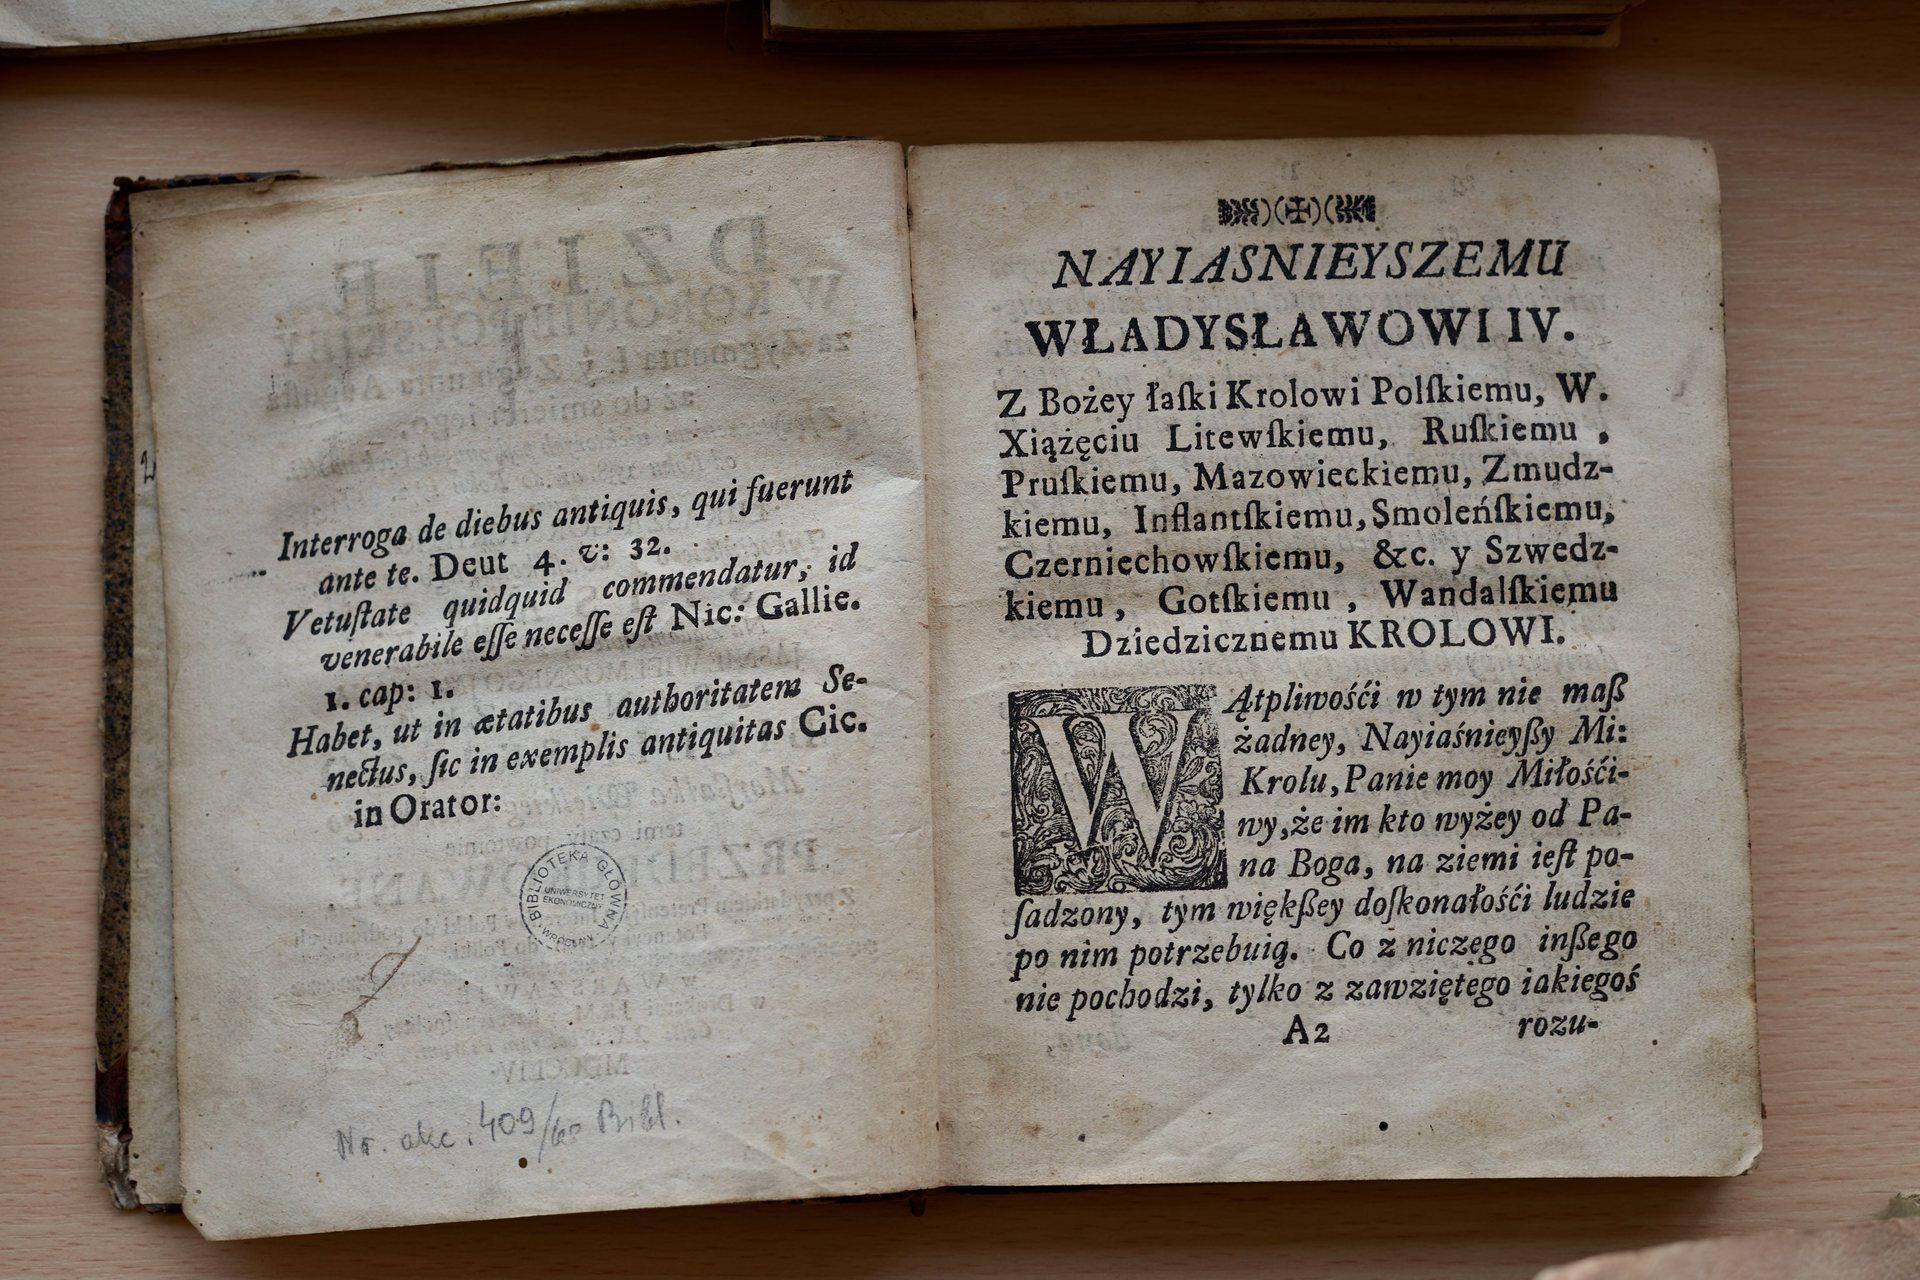 Interroga de diebus antiquis, qui fuerunt
ante te. Deut 4. v: 32.
Vetuſtate quidquid commendatur, id
venerabile eſſe neceſſe eſt Nic: Gallic.
1. cap: 1.
Habet, ut in ætatibus authoritatem Se-
nectus, ſic in exemplis antiquitas Cic.
in Orator:
BIBLIOTEKA GŁÓWNA
UNIWERSYTET
EKONOMICZNY
WROCŁAW
Nr. akc. 409/60 Bibl.
NAYIASNIEYSZEMU
WŁADYSŁAWOWI IV.
Z Bożey łaſki Krolowi Polſkiemu, W.
Xiążęciu Litewſkiemu, Ruſkiemu,
Pruſkiemu, Mazowieckiemu, Zmudz-
kiemu, Inflantſkiemu, Smoleńſkiemu,
Czerniechowſkiemu, &c. y Szwedz-
kiemu, Gotſkiemu, Wandalſkiemu
Dziedzicznemu KROLOWI.
WĄtpliwośći w tym nie maß
żadney, Nayiaśnieyßy Mi:
Krolu, Panie moy Miłośći-
wy, że im kto wyżey od Pa-
na Boga, na ziemi ieſt po-
ſadzony, tym więkßey doſkonałośći ludzie
po nim potrzebuią. Co z niczego inßego
nie pochodzi, tylko z zawziętego iakiegoś
A2 rozu-